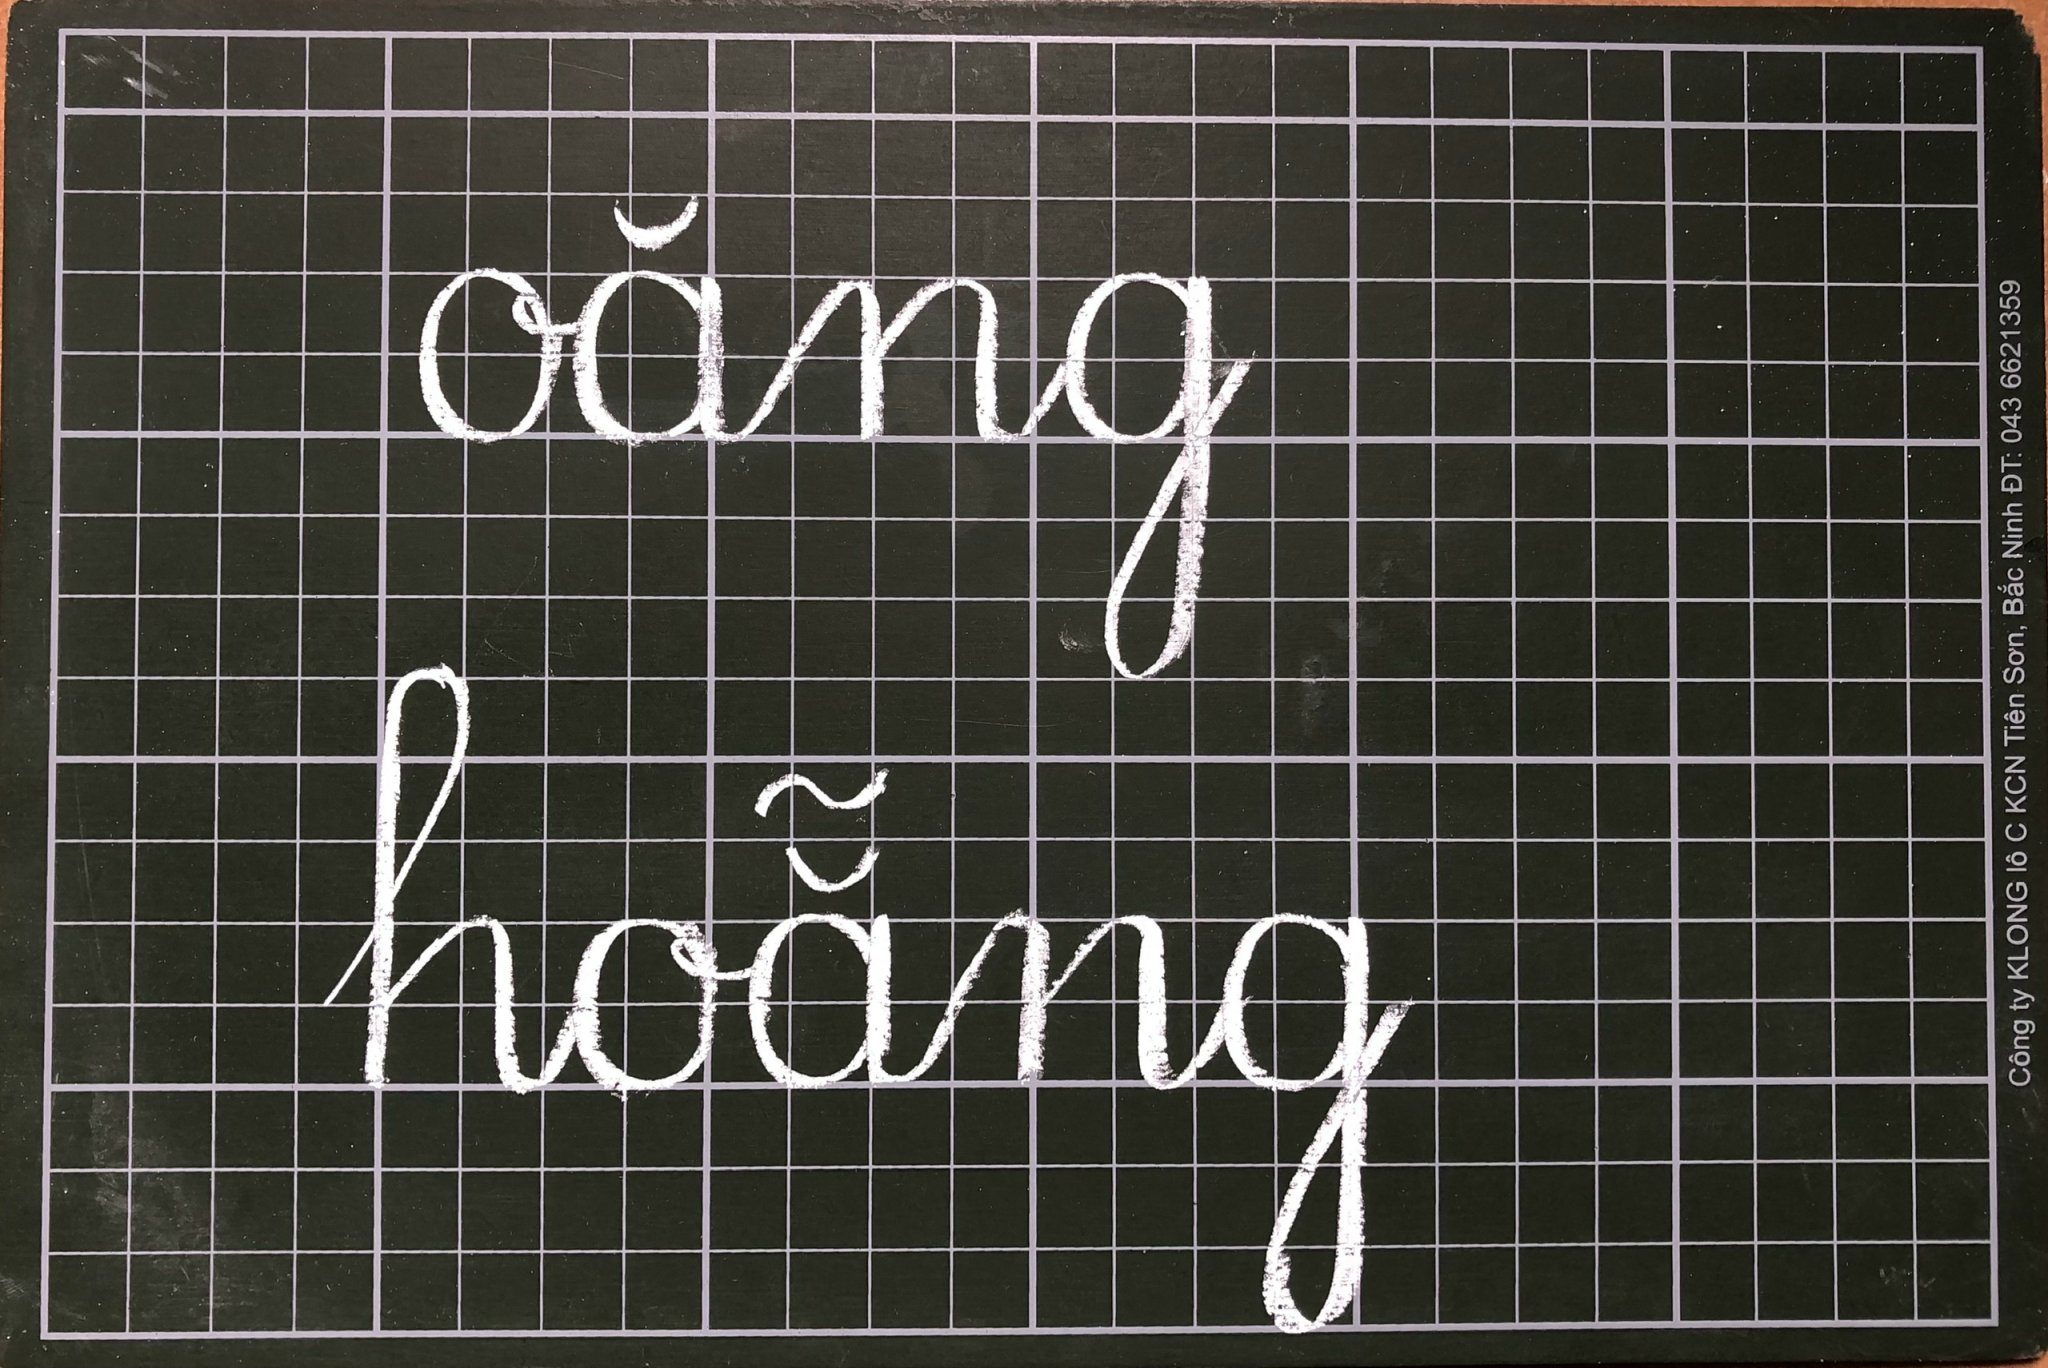 oăng
hoẵng
Công ty KLONG lô C KCN Tiên Sơn, Bắc Ninh ĐT: 043 6621359